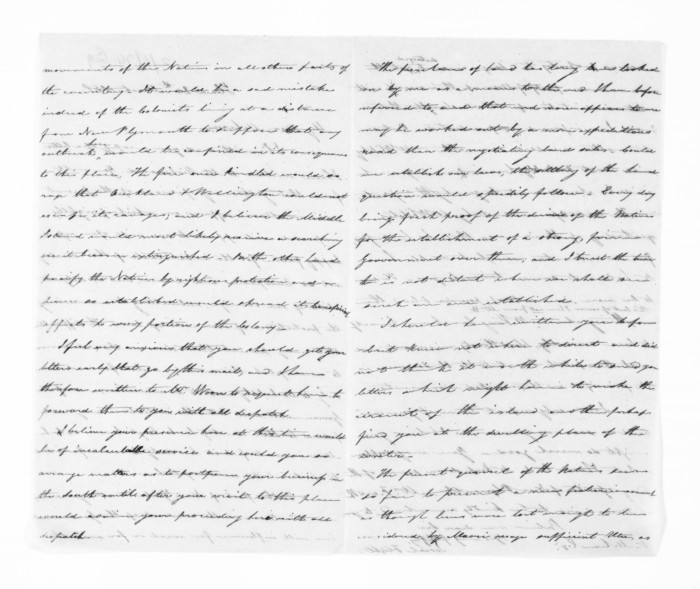 movements of the Natives in all other parts of
the country. It would be a sad mistake
indeed of the Colonists living at a distance
from New Plymouth to suppose that any
outbreak would be confined in its consequences
to this place. The fire once kindled would so
rage that Auckland & Wellington could not
escape its ravages, and I believe the Middle
Island would most likely receive a scorching
ere it been extinguished. On the other hand
pacify the Natives by righteous protection and
peace so established would spread its beneficial
effects to every portion of the Colony.
I feel very anxious that you should get your
letters early that go by this mail, and I have
therefore written to Mr. to request him to
forward them to you with all dispatch.
I believe your presence here at this time would
be of incalculable service and could you so
arrange matters as to postpone your business in
the South until after your visit to this place
would your proceeding here with all
dispatch.
The purchase of land has long been looked
on by me as a means to the end I have before
referred to, and that end now appears to me
may be worked out by a more expeditious
road than the negotiating land sales. Could
we establish our laws, the selling of the land
question would speedily follow. Every day
brings fresh proof of the desire of the Natives
for the establishment of a strong, firm
Government over them, and I trust the time
is not distant when we shall see
such established.
I should have written you before
but knew not where to direct and did
not think it worth while to send you
letters which might have to make the
circuit of the island and perhaps
find you at the dwelling place of the
writer.
The present quarrel of the Natives
so far to present a new feature inasmuch
as though lives were lost enough to have
considered by Maori usage sufficient Utu, as